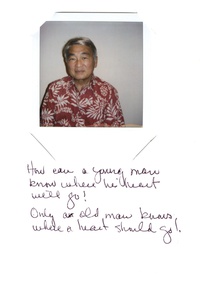 How can a young man
know where his heart
will go!
Only an old man knows
where a heart should go!